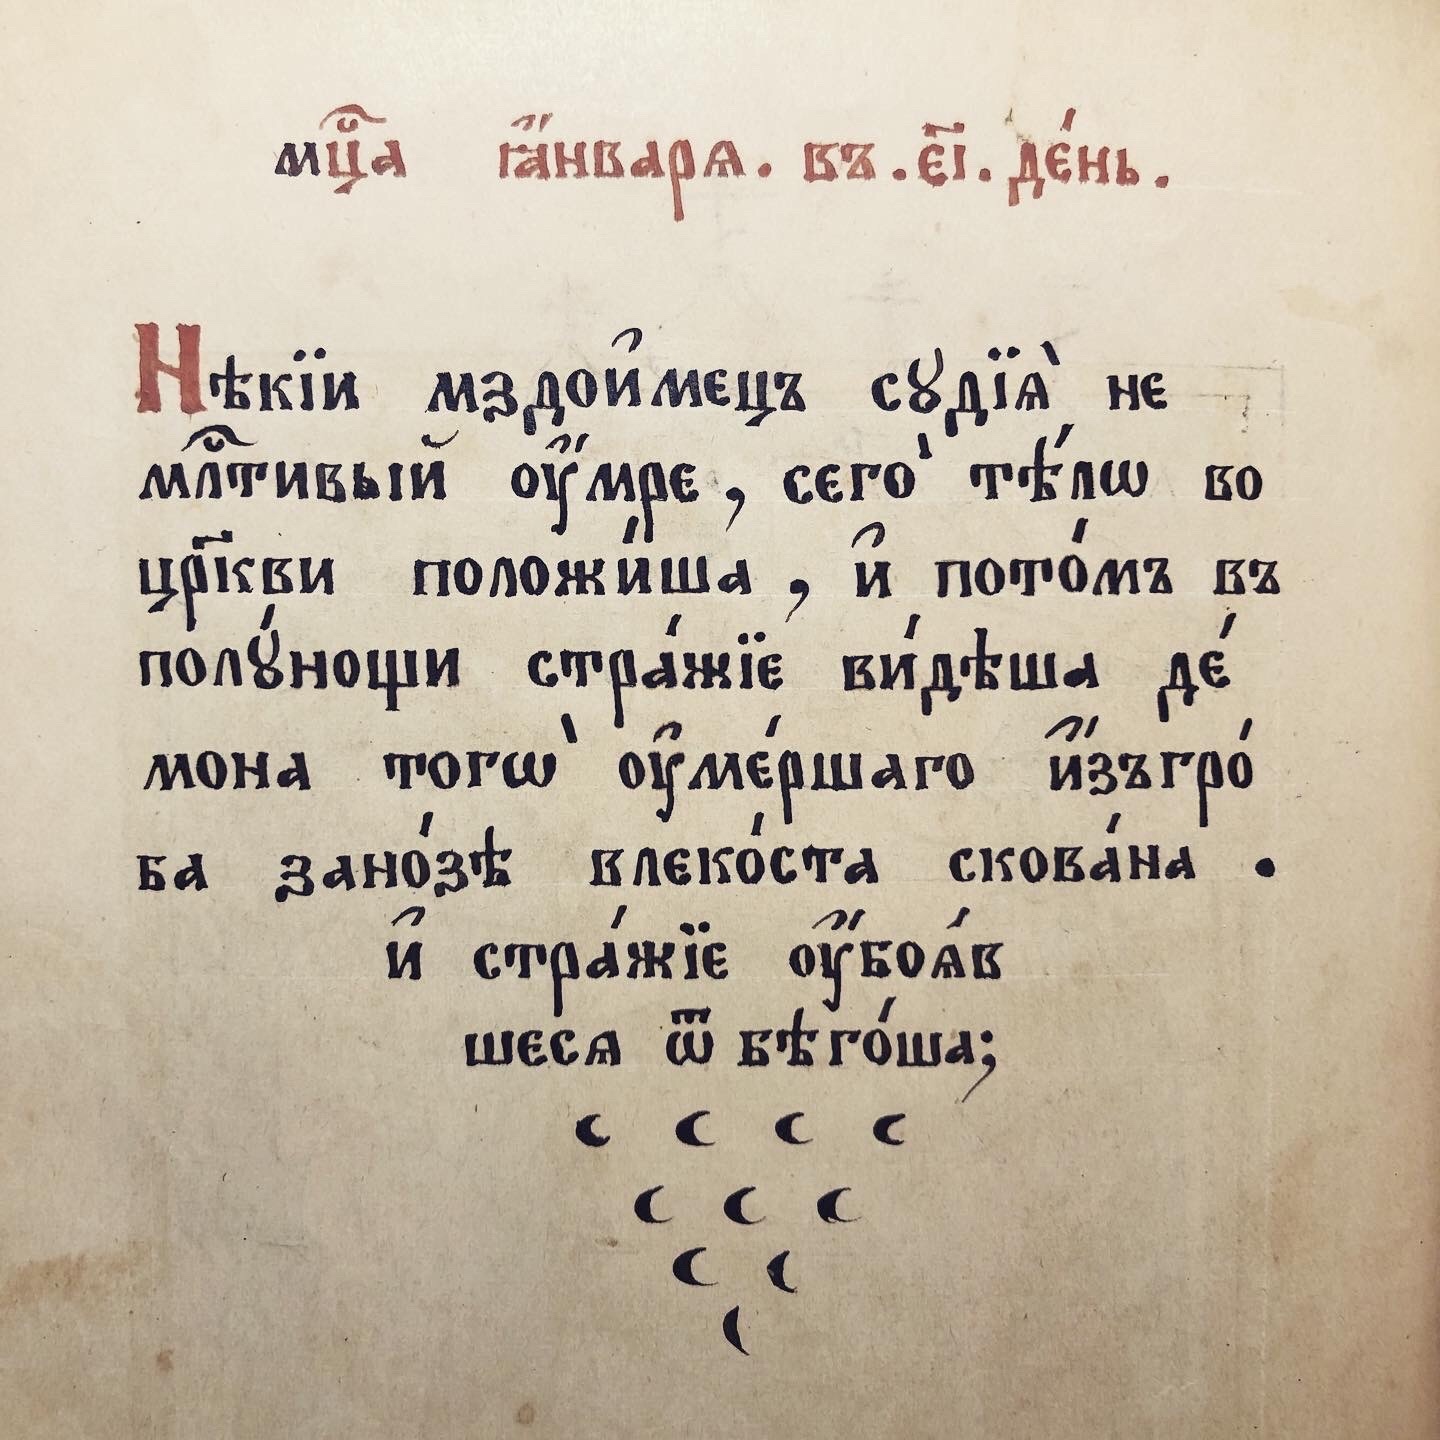 мⷭ҇ца їа҆нварѧ. въ. є҃і. де́нь.
Нѣкїи мздои҆мєцъ сꙋдїѧ̀ нє
млⷭ҇тивый ᲂу҆́мрє, сєго̀ тѣ́лѡ во
цр҃кви положи́ша, и҆ пото́мъ въ
полꙋ́нощи стра́жїє ви́дѣша дє́
мона тогѡ̀ ᲂу҆мє́ршаго и҆́зъгро́
ба зано́зѣ влєко́ста скова́на.
и҆ стра́жїє ᲂу҆́боѧ́в
шєсѧ ѿ бѣго́ша;